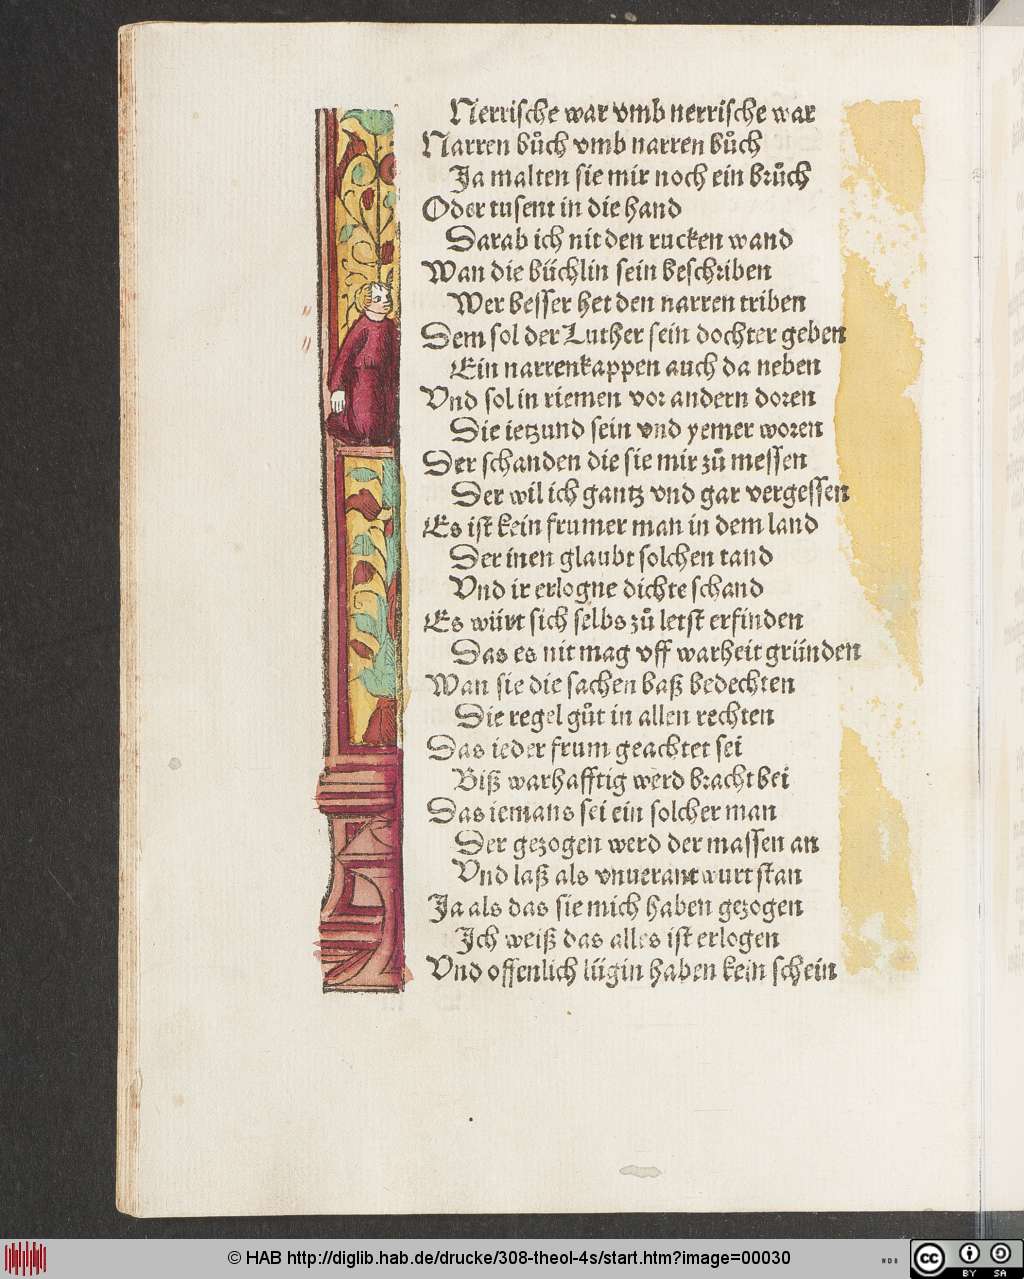 Nerrische war vmb nerrische war
Narren bůch vmb narren bůch
Ja malten sie mir noch ein brůch
Oder tusent in die hand
Darab ich nit den rucken wand
Wan die büchlin sein beschriben
Wer besser het den narren triben
Dem sol der Luther sein dochter geben
Ein narrenkappen auch da neben
Vnd sol in riemen vor andern doren
Die ietzund sein vnd yemer woren
Der schanden die sie mir zů messen
Der wil ich gantz vnd gar vergessen
Es ist kein frumer man in dem land
Der inen glaubt solchen tand
Vnd ir erlogne dichte schand
Es würt sich selbs zů letst erfinden
Das es nit mag vff warheit gründen
Wan sie die sachen baß bedechten
Die regel gůt in allen rechten
Das ieder frum geachtet sei
Biß warhafftig werd bracht bei
Das iemans sei ein solcher man
Der gezogen werd der massen an
Vnd laß als vnuerantwurt stan
Ja als das sie mich haben gezogen
Ich weiß das alles ist erlogen
Vnd offenlich lügin haben kein schein
© HAB http://diglib.hab.de/drucke/308-theol-4s/start.htm?image=00030
WDB
cc BY SA